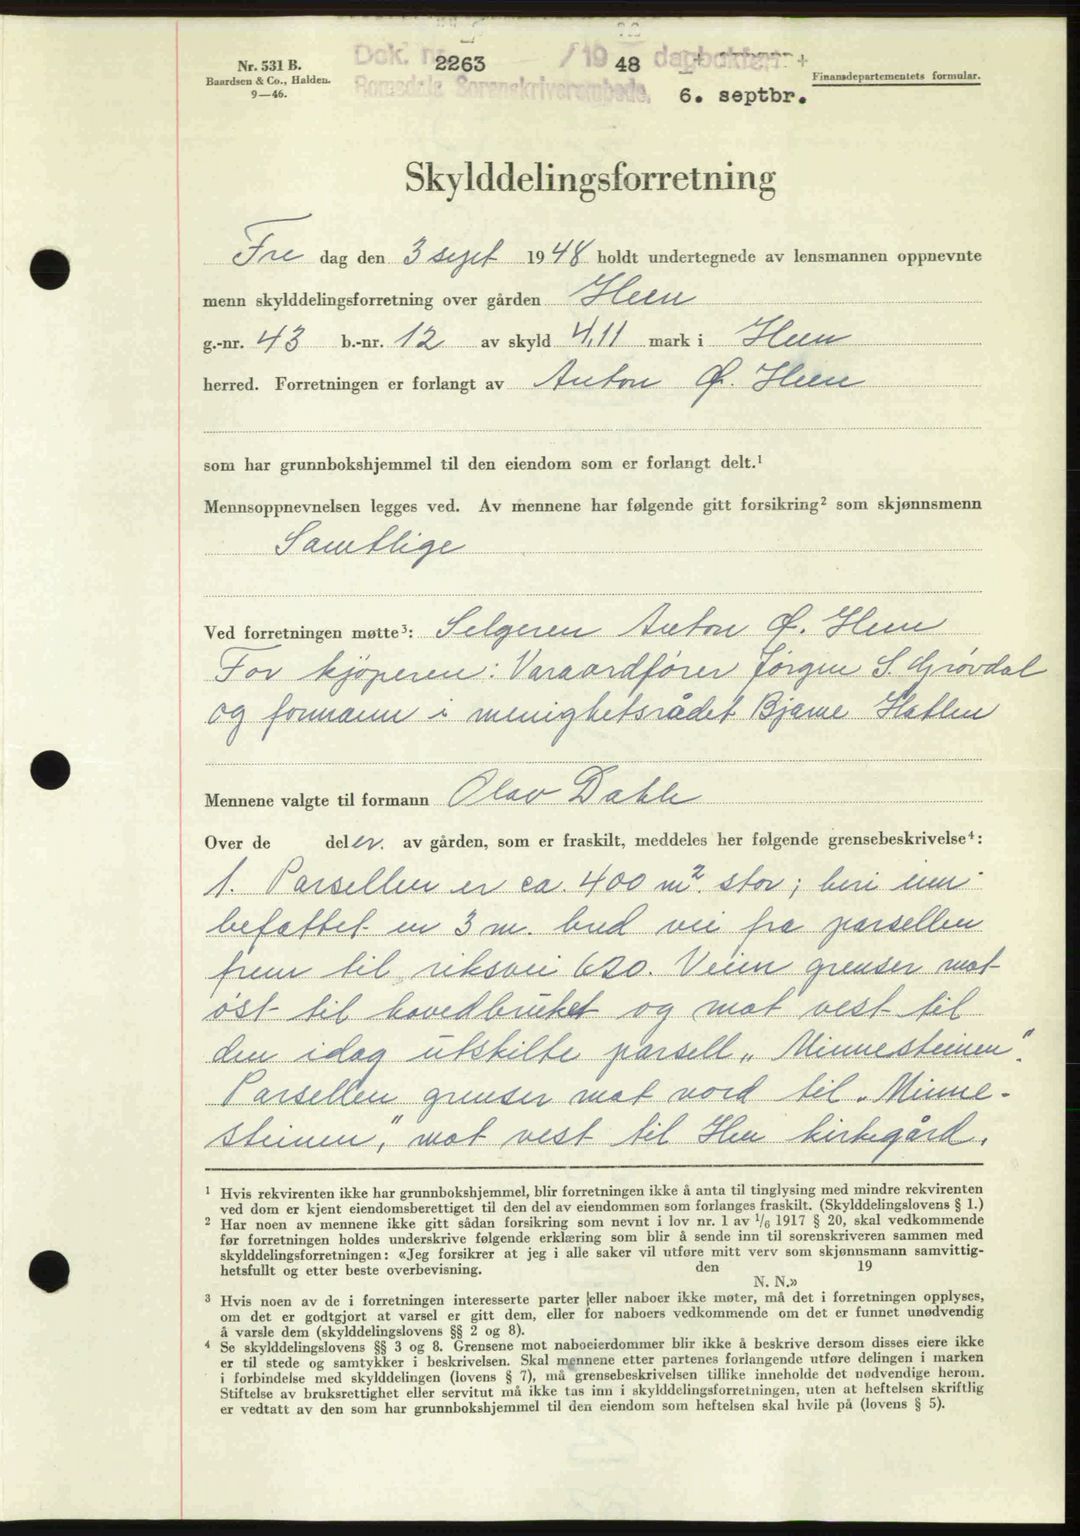 Nr. 531 B.
Baardsen & Co., Halden.
9—46.
Dok. nr. 2263 /19 48 dagboken
Romsdals Sorenskriverembede.
6. septbr.
Finansdepartementets formular.
Skylddelingsforretning
Fre dag den 3 sept 1948 holdt undertegnede av lensmannen oppnevnte
menn skylddelingsforretning over gården Heen
g.-nr. 43 b.-nr. 12 av skyld 4,11 mark i Heen
herred. Forretningen er forlangt av Anton Ø. Heen
som har grunnbokshjemmel til den eiendom som er forlangt delt.¹
Mennsoppnevnelsen legges ved. Av mennene har følgende gitt forsikring² som skjønnsmenn
Samtlige
Ved forretningen møtte³: Selgeren Anton Ø. Heen
For kjöperen: Varaordfører Jørgen S. Grøvdal
og formann i menighetsrådet Bjarne Hatlen
Mennene valgte til formann Olav Dahle
Over de deler. av gården, som er fraskilt, meddeles her følgende grensebeskrivelse⁴:
1. Parsellen er ca. 400 m². stor; heri inn-
befattet en 3 m. bred vei fra parsellen
frem til riksvei 620. Veien grenser mot
öst til hovedbruket og mot vest til
den idag utskilte parsell „Minnesteinen".
Parsellen grenser mot nord til „Minne-
steinen", mot vest til Hen kirkegård,
¹ Hvis rekvirenten ikke har grunnbokshjemmel, blir forretningen ikke å anta til tinglysing med mindre rekvirenten
ved dom er kjent eiendomsberettiget til den del av eiendommen som forlanges fraskilt. (Skylddelingslovens § 1.)
² Har noen av mennene ikke gitt sådan forsikring som nevnt i lov nr. 1 av 1/6 1917 § 20, skal vedkommende
før forretningen holdes underskrive følgende erklæring som blir å sende inn til sorenskriveren sammen med
skylddelingsforretningen: «Jeg forsikrer at jeg i alle saker vil utføre mitt verv som skjønnsmann samvittig-
hetsfullt og etter beste overbevisning. den 19
N. N.»
³ Hvis noen av de i forretningen interesserte parter eller naboer ikke møter, må det i forretningen opplyses,
om det er godtgjort at varsel er gitt dem, eller for naboers vedkommende om det er funnet unødvendig
å varsle dem (skylddelingslovens §§ 2 og 8).
⁴ Se skylddelingslovens §§ 3 og 8. Grensene mot naboeierdommer blir ikke å beskrive dersom disses eiere ikke
er til stede og samtykker i beskrivelsen. Skal mennene etter partenes forlangende utføre delingen i marken
i forbindelse med skylddelingen (lovens § 7), må grensebeskrivelsen tillike inneholde det nødvendige herom.
Stiftelse av bruksrettighet eller servitut må ikke tas inn i skylddelingsforretningen, uten at heftelsen skriftlig
er vedtatt av den som har grunnbokshjemmel til den eiendom som heftelsen skal hvile på (lovens § 5).